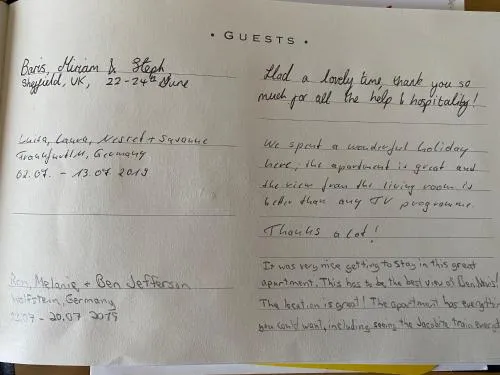 • GUESTS •
Baris, Miriam & Steph
Sheffield, UK, 22-24th June
Had a lovely time, thank you so
much for all the help & hospitality!
Luisa, Laura, Nesret + Susanne
Frankfurt/M, Germany
02.07. - 13.07 2019
We spent a wonderful holiday
here, the apartment is great and
the view from the living room is
better than any TV programme.
Thanks a lot!
Ron, Melanie, + Ben Jefferson
Wolfstein, Germany
07 - 20.07 2019
It was very nice getting to stay in this great
apartment. This has to be the best view of Ben Nevis!
The location is great! The apartment has everything
you could want, including seeing the Jacobite train